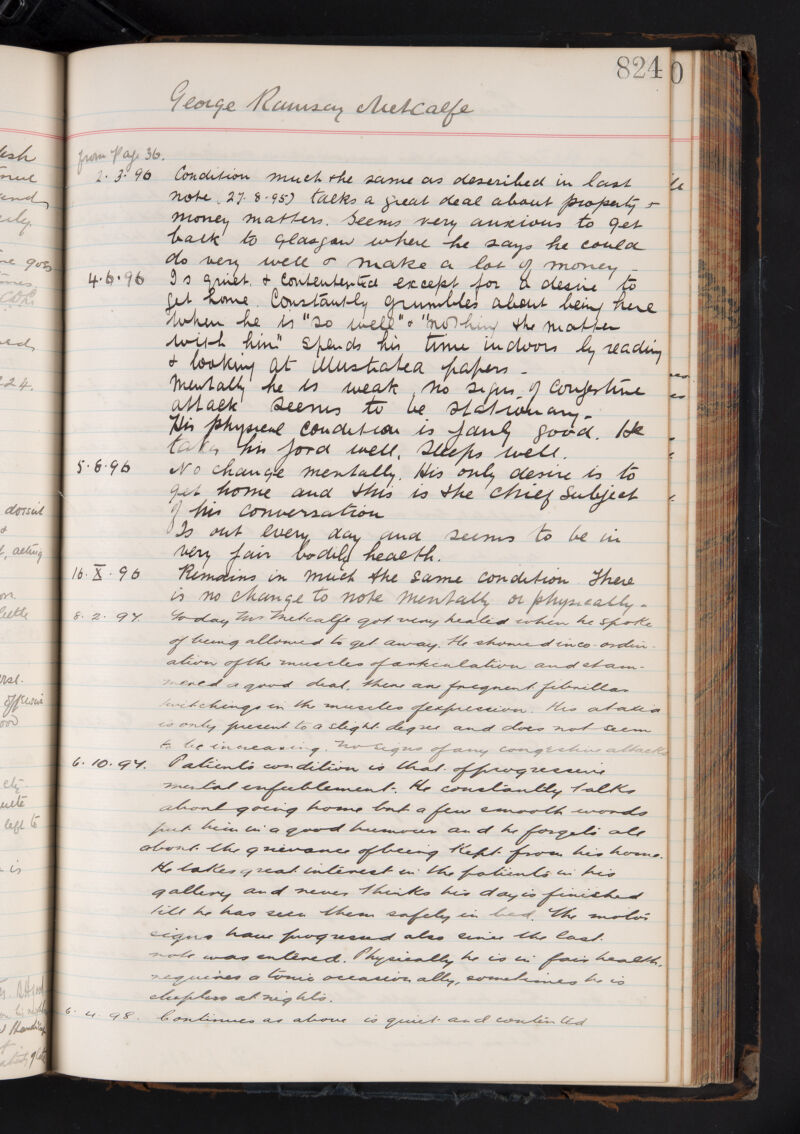 824
0
George Ramsay Metcalfe
from Page 36.
2.3.96 Condition much the same as described in last
note (27.8.95) talks a great deal about property &
money matters. Seems very anxious to get
back to Glasgow where he says he could
do very well & make a lot of money
4.6.96 Is quiet & contententted except for a desire to
get home. Constantly grumbles about being here
when he is "so well" & "nothing the matter
with him" spends his time indoors by reading
& looking at illustrated papers -
Mentally he is weak, no signs of congestive
attack seems to be stationary -
His physical condition is fairly good. He
takes his food well, sleeps well.
5.8.96 No change mentally. His only desire is to
get home and this is the chief subject
of his conversation
Is out every day and seems to be in
very fair bodily health.
16.X.96 Remains in much the same condition. There
is no change to note mentally or physically -
8.2.97 Today Mr Metcalfe got very heated when he spoke
of being allowed to get away. He showed inco-ordin-
ation of the muscles of articulation and stam-
mered a good deal. There are frequent fibrillar
twitchings in the muscles of expression. His ataxia
is only present to a slight degree and does not seem
to be increasing. No signs of any congestive attacks
6.10.97. Patient's condition is that of progressive
mental enfeeblement. He constantly talks
about going home but a few smooth words
put him in a good humour and he forgets all
about the grievance of being kept from his home.
He takes great interest in the patients in his
gallery and never thinks his day is finished
till he has seen them safely in bed. The motor
signs have progressed also since the last
note was entered. Physically he is in fair health,
requires a tonic occasionally, sometimes he is
sleepless at nights.
6.4.98. Continues as above is quiet and contented